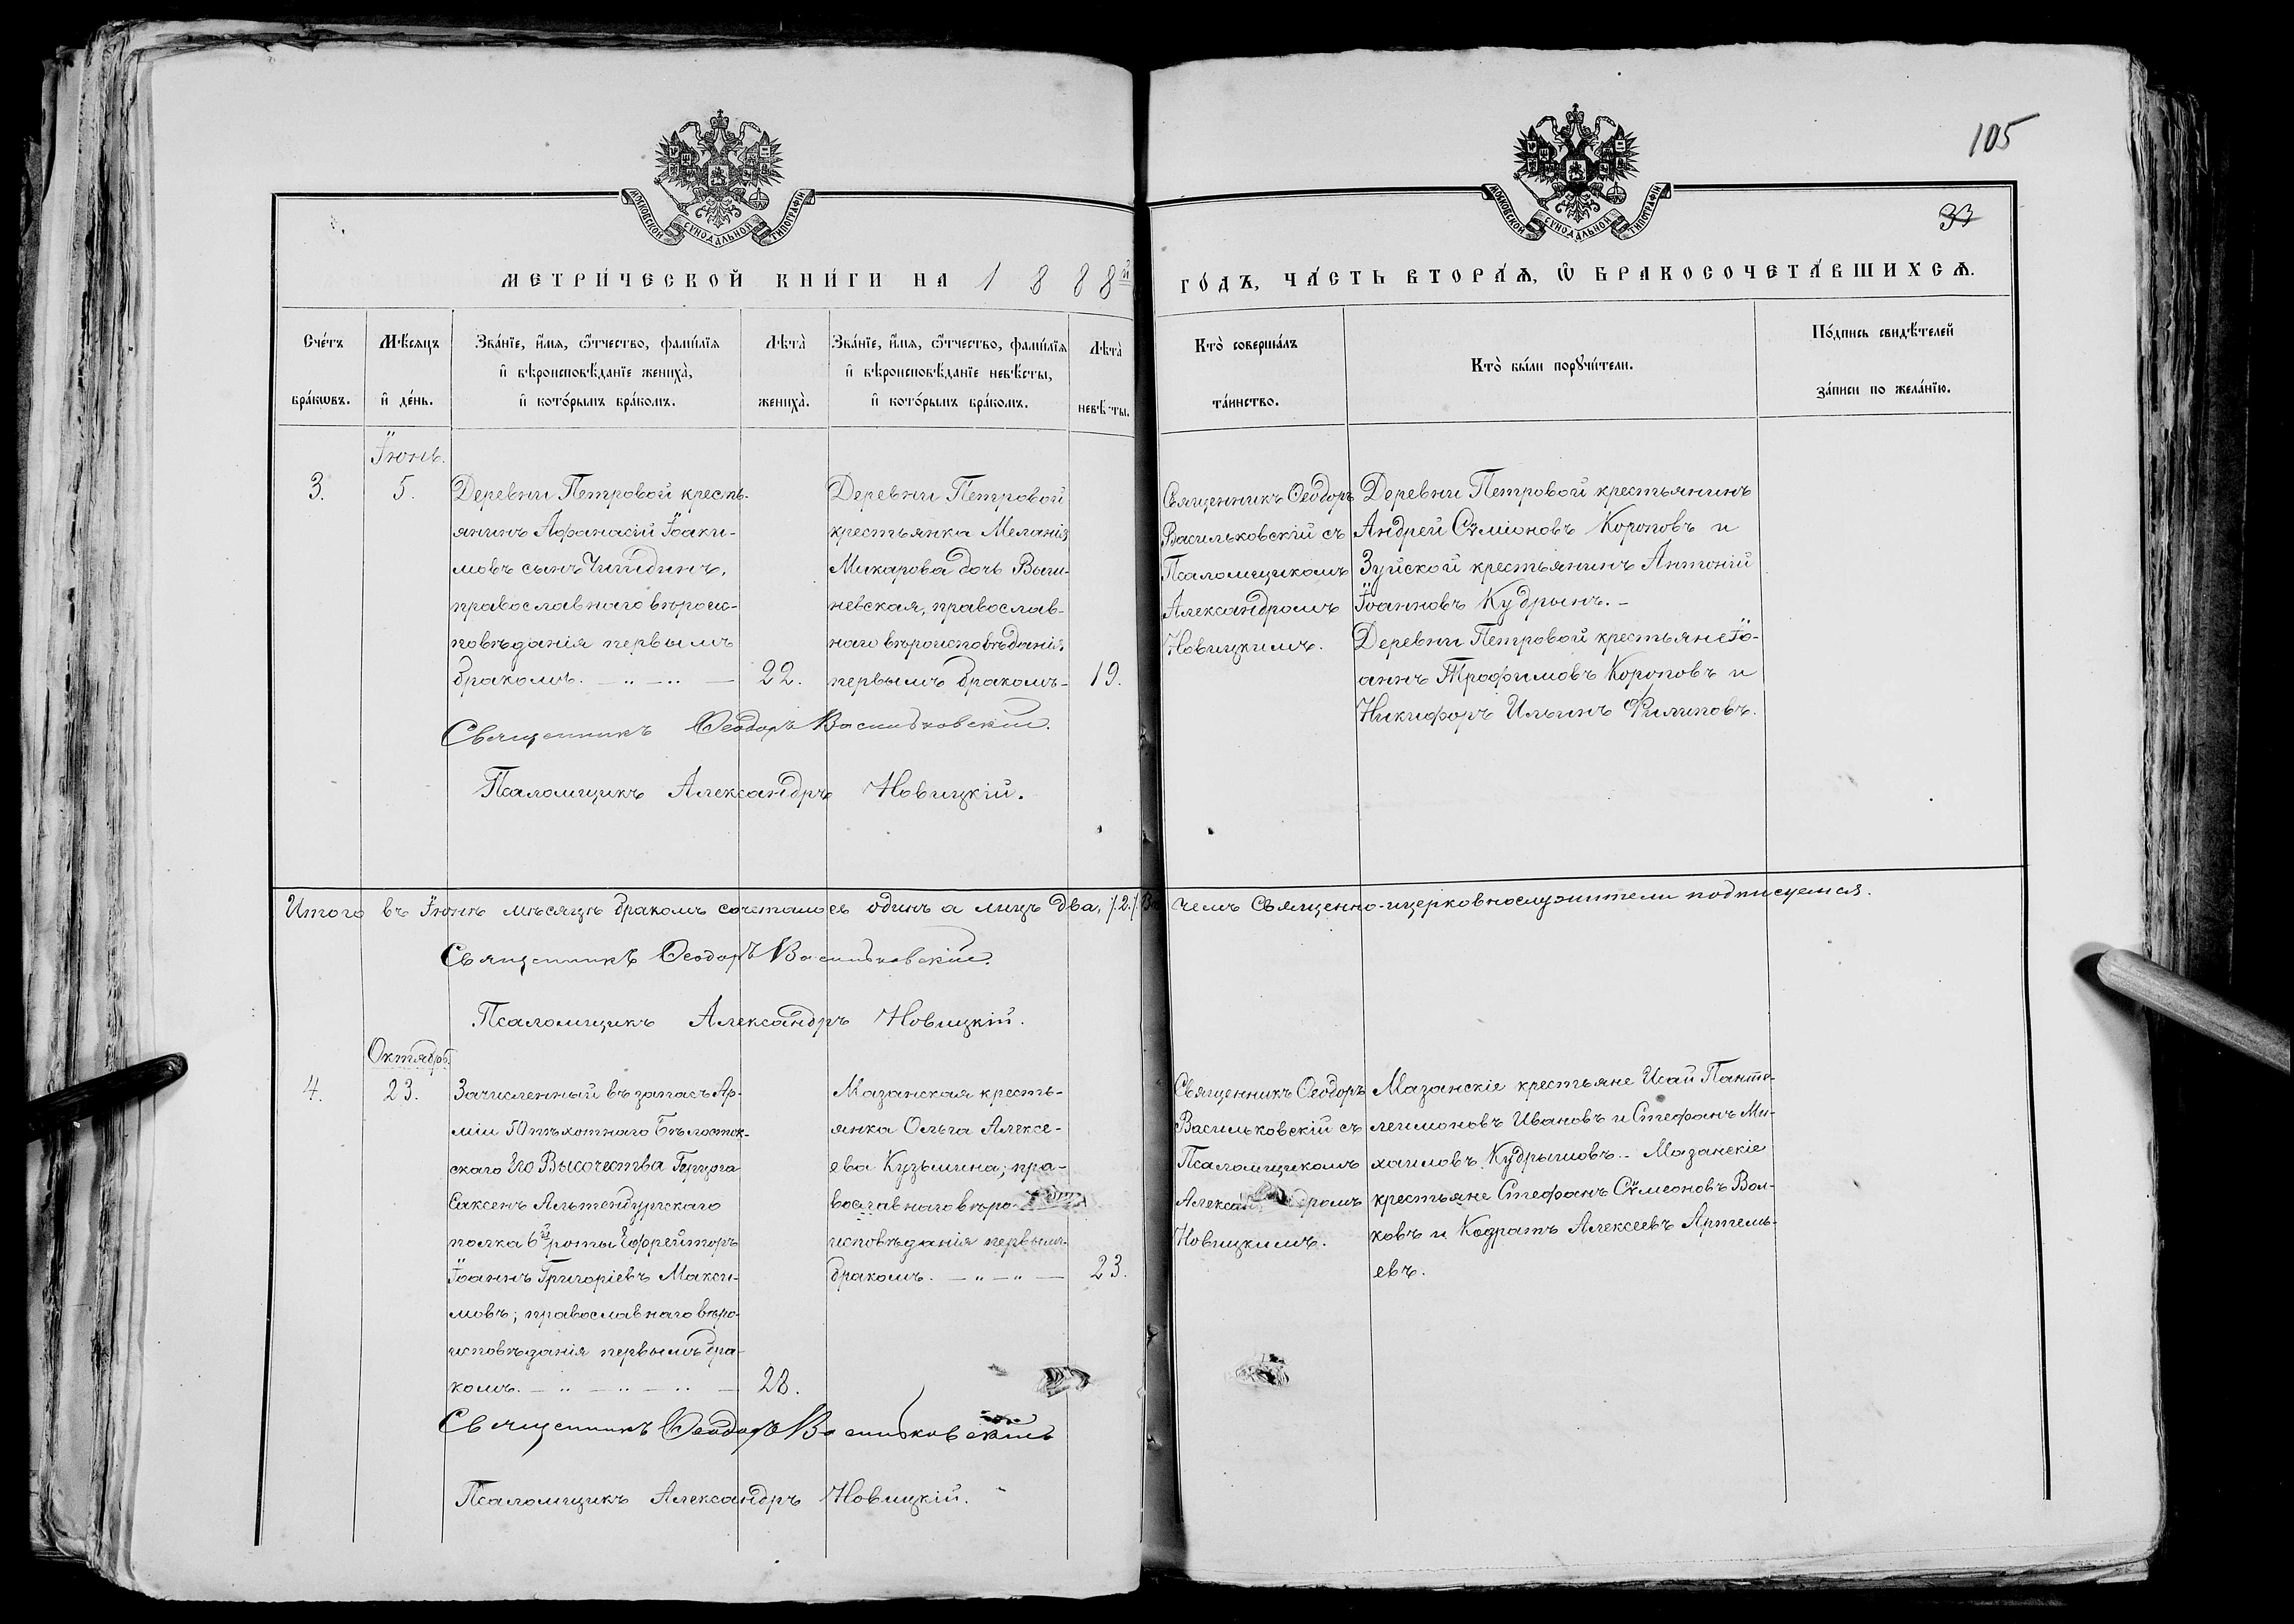 105
33
МОСКОВСКОЙ СѴНОДАЛЬНОЙ ТИПОГРАФІИ
МОСКОВСКОЙ СѴНОДАЛЬНОЙ ТИПОГРАФІИ
МЕТРИ́ЧЕСКОЙ КНИ́ГИ НА 1888й
ГО́ДЪ, ЧА́СТЬ ВТОРА́Ѧ, Ѽ БРАКОСОЧЕТА́ВШИХСѦ.
Сче́тъ
бра́кωвъ.
Мѣ́сяцъ
и҆ де́нь.
Зва́нїе, и҆́мя, ѻ҆́тчество, фами́лїя
и҆ вѣроисповѣ́данїе жениха̀,
и҆ кото́рымъ бра́комъ.
Лѣта̀
жениха̀.
Зва́нїе, и҆́мя, ѻ҆́тчество, фами́лїя
и҆ вѣроисповѣ́данїе невѣ́сты,
и҆ кото́рымъ бра́комъ.
Лѣта̀
невѣ́сты.
Кто̀ соверша́лъ
та́инство.
Кто̀ бы́ли порꙋчи́тели.
По́дпись свидѣ́телей
за́писи по жела́нїю.
Їюнь.
3.
5.
Деревни Петровой кресть-
янинъ Афанасій Їоаки-
мовъ сынъ Чийдинъ,
православнаго вѣроис-
повѣданія первымъ
бракомъ.
22.
Деревни Петровой
крестьянка Меланія
Макарова дочь Выши-
невская, православ-
наго вѣроисповѣданія
первымъ бракомъ
19.
Священникъ Ѳеодоръ
Васильковскій съ
Псаломщикомъ
Александромъ
Новицкимъ.
Деревни Петровой крестьянинъ
Андрей Сѵмїоновъ Короповъ и
Зуйской крестьянинъ Антоній
Їоанновъ Кудрынъ. –
Деревни Петровой крестьяне Їо-
аннъ Трофимовъ Короповъ и
Никифоръ Ильинъ Филиповъ.
Священникъ Ѳеодоръ Васильковскій.
Псаломщикъ Александръ Новицкій.
Итого въ Їюнѣ мѣсяцѣ бракомъ сочеталось одинъ а лицъ два, /.2./ Въ чемъ Священно-ицерковнослужители подписуемся.
Священникъ Ѳеодоръ Васильковскій.
Псаломщикъ Александръ Новицкій.
Октябрь.
4.
23.
Зачисленный въ запасъ Ар-
міи 50 пѣхотнаго Бѣлосток-
скаго Его Высочества Герцога
Саксенъ Альтенбургскаго
полка 6й роты Ефрейторъ
Їоаннъ Григоріевъ Макси-
мовъ; православнаго вѣро-
исповѣданія первымъ бра-
комъ.
28.
Мазанская кресть-
янка Ольга Алексе-
ева Кузьмина; пра-
вославнаго вѣро-
исповѣданія первымъ
бракомъ.
23.
Священникъ Ѳеодоръ
Васильковскій съ
Псаломщикомъ
Александромъ
Новицкимъ.
Мазанскіе крестьяне Исай Панте-
леимоновъ Ивановъ и Стефанъ Ми-
хаиловъ Кудрышовъ. – Мазанскіе
крестьяне Стефанъ Сѵмеоновъ Вол-
ковъ и Кодратъ Алексеевъ Артемь-
евъ.
Священникъ Ѳеодоръ Васильковскій
Псаломщикъ Александръ Новицкій.